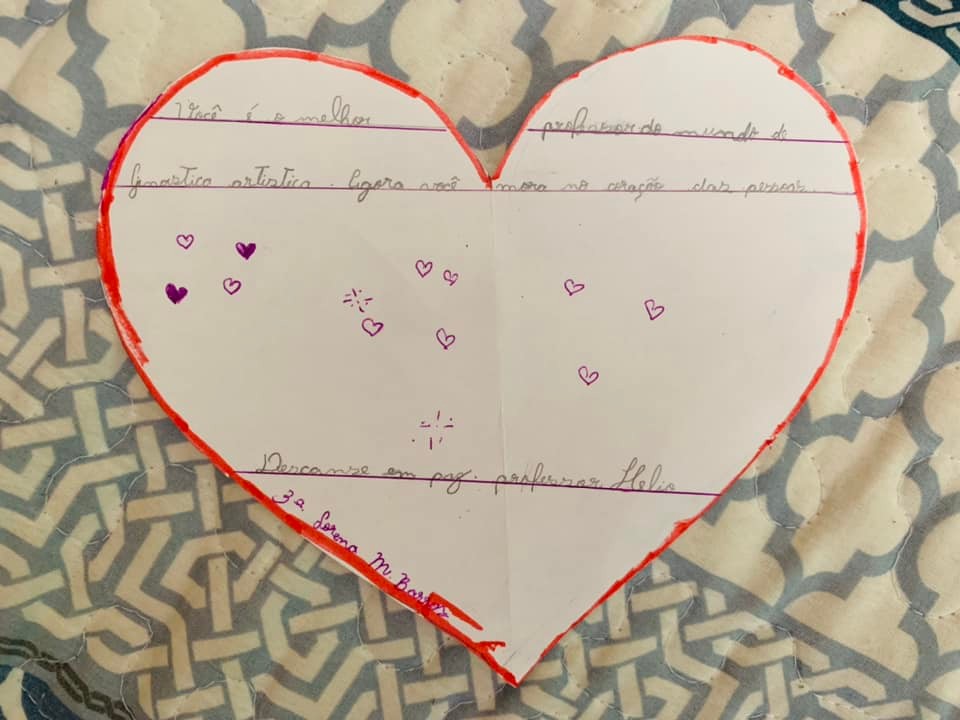 Você é o melhor professor do mundo de
Ginastica artistica. Agora você mora no coração das pessoas.
Descanse em paz. professor Helio
3a. Lorena M. Barros